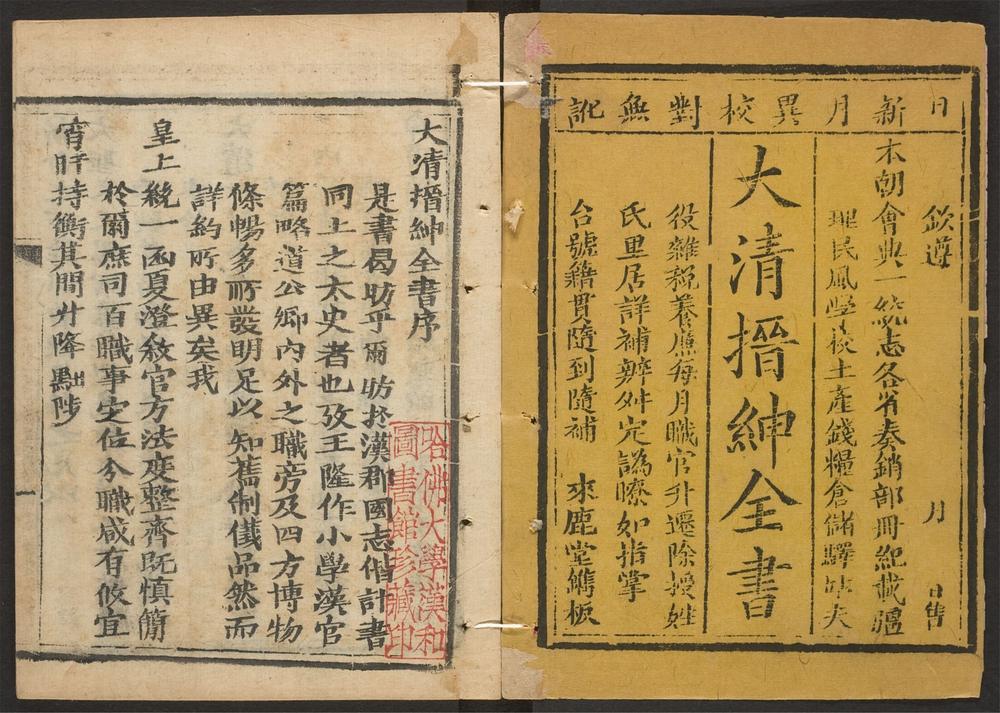 日新月異校對無訛
欽遵　月　日售
本朝會典一統志各省奏銷部冊紀載疆
理民風學校土產錢糧倉儲驛站夫
大清搢紳全書
役雜稅養廉每月職官升遷除授姓
氏里居詳補辨舛定譌瞭如指掌
台號籍貫隨到隨補　來鹿堂鐫板
大清搢紳全書序
是書曷昉乎爾昉於漢郡國志偕計書
同上之太史者也攷王隆作小學漢官
篇略道公卿內外之職旁及四方博物
條暢多所發明足以知舊制儀品然而
詳約所由異矣我
皇上統一函夏澄敘官方法度整齊既慎簡
於爾庶司百職事定位分職咸有攸宜
宵旰持衡其間升降黜陟
哈佛大學漢和
圖書館珍藏印